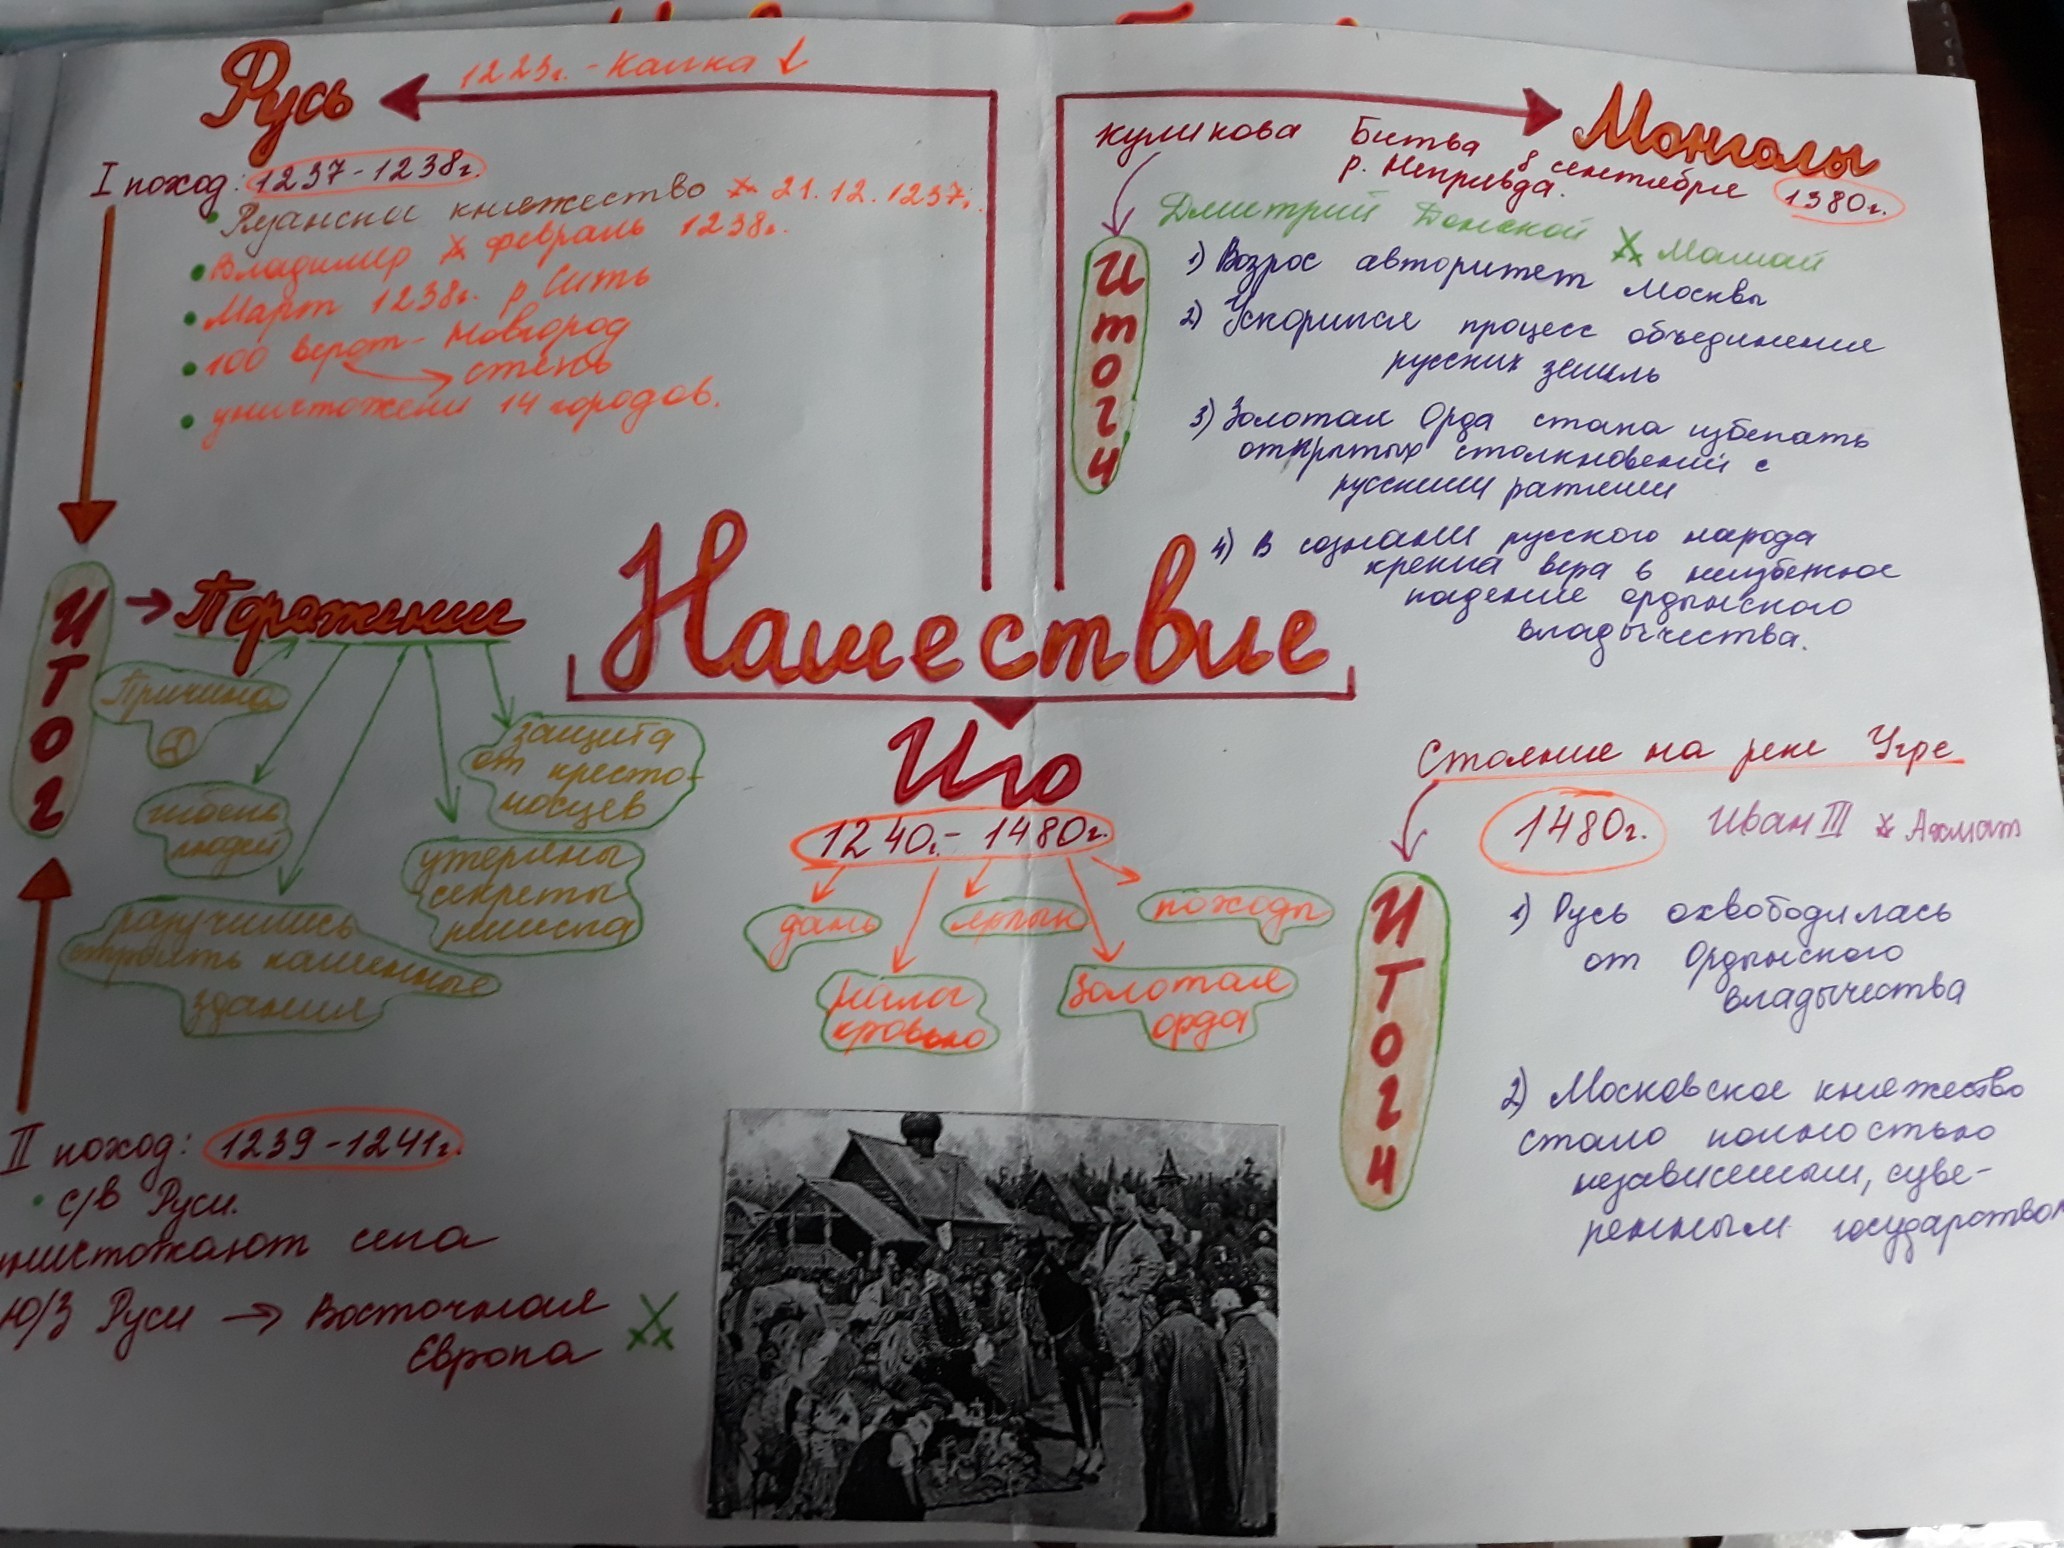 Русь
1223г. - Калка ↓
I поход: 1237-1238г.
• Рязанское княжество 21.12.1237г.
• Владимир февраль 1238г.
• Март 1238г. р Сить
• 100 верст - Новгород
степь
• уничтожены 14 городов.
Монголы
куликова Битва 8 сентября 1380г.
р. Непрявда.
Дмитрий Донской Мамай
Итоги
1) Возрос авторитет Москвы
2) Ускорился процесс объединения
русских земель
3) Золотая Орда стала избегать
открытых столкновений с
русскими ратями
4) В сознании русского народа
крепла вера в неизбежное
падение ордынского
владычества.
Нашествие
Итог
→ Поражение
Причина
гибель
людей
разучились
строить каменные
здания
утеряны
секреты
ремесла
защита
от кресто-
носцев
Иго
1240г. - 1480г.
дань
налог
кровью
ярлык
Золотая
орда
походы
Стояние на реке Угре
1480г. Иван III Ахмат
Итоги
1) Русь охвободилась
от Ордынского
владычества
2) Московское княжество
стало полностью
независимым, суве-
ренным государством
II поход: 1239-1241г.
• с/в Руси.
уничтожают села
Ю/З Руси → Восточная
Европа